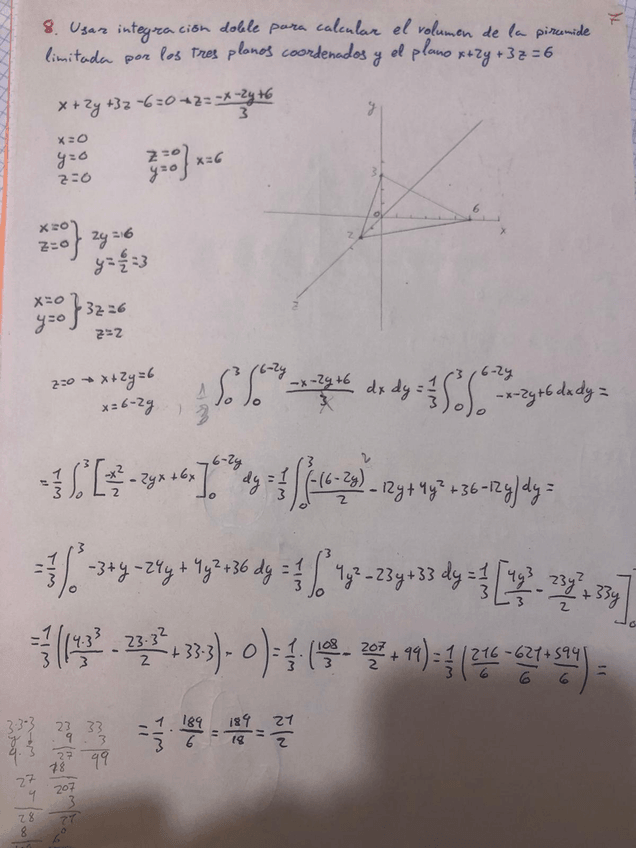 8. Usar integración doble para calcular el volumen de la piramide
limitada por los tres planos coordenados y el plano x+2y+3z=6
x+2y+3z-6=0→z=(-x-2y+6)/3
x=0
y=0
z=0
z=0
y=0 } x=6
x=0
z=0 } 2y=6
y=6/2=3
x=0
y=0 } 3z=6
z=2
y
3
0
6
x
2
z
z=0→x+2y=6
x=6-2y
∫₀³ ∫₀^(6-2y) (-x-2y+6)/3 dx dy = 1/3 ∫₀³ ∫₀^(6-2y) -x-2y+6 dx dy =
= 1/3 ∫₀³ [-x²/2 - 2yx + 6x]₀^(6-2y) dy = 1/3 ∫₀³ (-(6-2y)²/2 - 12y + 4y² + 36 - 12y) dy =
= 1/3 ∫₀³ -3+y-24y+4y²+36 dy = 1/3 ∫₀³ 4y²-23y+33 dy = 1/3 [4y³/3 - 23y²/2 + 33y]₀
= 1/3 ((4·3³/3 - 23·3²/2 + 33·3) - 0) = 1/3 · (108/3 - 207/2 + 99) = 1/3 (216/6 - 621/6 + 594/6) =
= 1/3 · 189/6 = 189/18 = 21/2
23
9
27
18
207
3
21
33
3
99
27
4
28
8